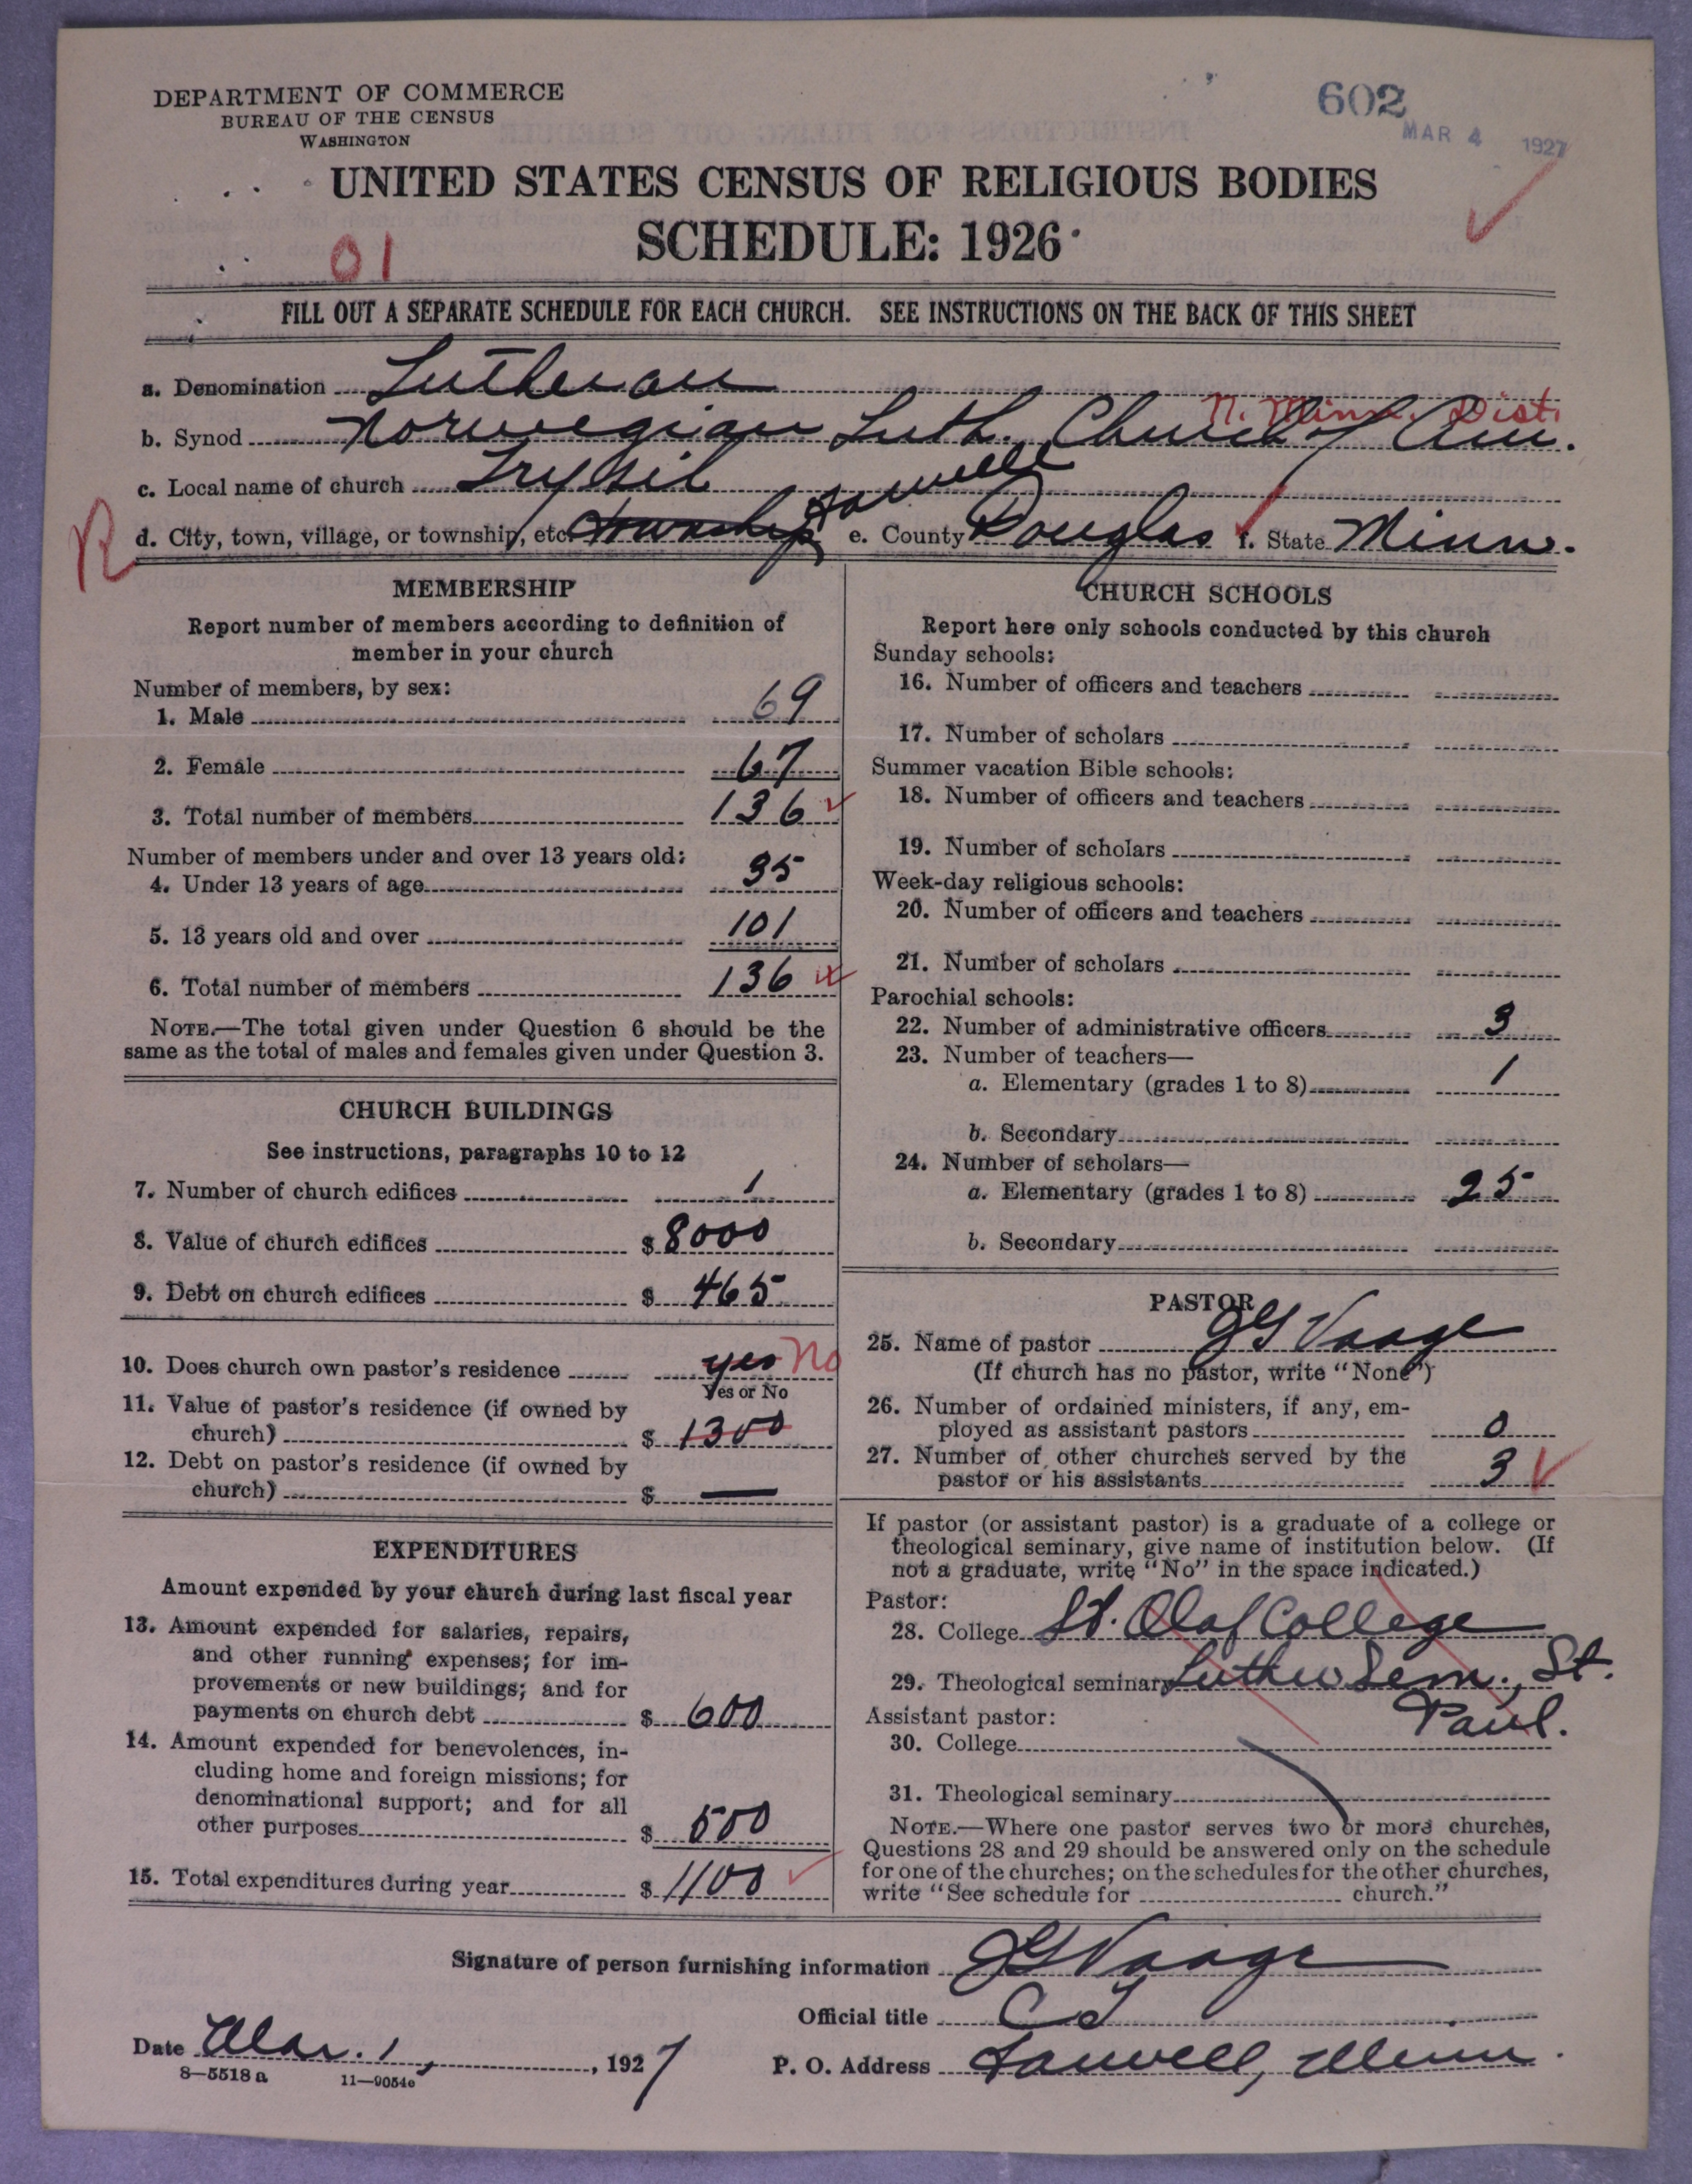 DEPARTMENT OF COMMERCE
BUREAU OF THE CENSUS
WASHINGTON
602
MAR 4 1927
UNITED STATES CENSUS OF RELIGIOUS BODIES
SCHEDULE: 1926
01
FILL OUT A SEPARATE SCHEDULE FOR EACH CHURCH. SEE INSTRUCTIONS ON THE BACK OF THIS SHEET
a. Denomination Lutheran
N. Minn. Dist.
b. Synod Norwegian Luth. Church of Am.
c. Local name of church Trysil
R
d. City, town, village, or township, etc. township Farwell e. County Douglas f. State Minn.
MEMBERSHIP
Report number of members according to definition of
member in your church
Number of members, by sex:
1. Male 69
2. Female 67
3. Total number of members 136
Number of members under and over 13 years old:
4. Under 13 years of age 35
5. 13 years old and over 101
6. Total number of members 136
NOTE.—The total given under Question 6 should be the
same as the total of males and females given under Question 3.
CHURCH BUILDINGS
See instructions, paragraphs 10 to 12
7. Number of church edifices 1
8. Value of church edifices $ 8000
9. Debt on church edifices $ 465
10. Does church own pastor's residence yes No
Yes or No
11. Value of pastor's residence (if owned by
church) $ 1300
12. Debt on pastor's residence (if owned by
church) $ —
EXPENDITURES
Amount expended by your church during last fiscal year
13. Amount expended for salaries, repairs,
and other running expenses; for im-
provements or new buildings; and for
payments on church debt $ 600
14. Amount expended for benevolences, in-
cluding home and foreign missions; for
denominational support; and for all
other purposes $ 500
15. Total expenditures during year $ 1100
CHURCH SCHOOLS
Report here only schools conducted by this church
Sunday schools:
16. Number of officers and teachers
17. Number of scholars
Summer vacation Bible schools:
18. Number of officers and teachers
19. Number of scholars
Week-day religious schools:
20. Number of officers and teachers
21. Number of scholars
Parochial schools:
22. Number of administrative officers 3
23. Number of teachers—
a. Elementary (grades 1 to 8) 1
b. Secondary
24. Number of scholars—
a. Elementary (grades 1 to 8) 25
b. Secondary
PASTOR
25. Name of pastor JG Vaage
(If church has no pastor, write "None")
26. Number of ordained ministers, if any, em-
ployed as assistant pastors 0
27. Number of other churches served by the
pastor or his assistants 3
If pastor (or assistant pastor) is a graduate of a college or
theological seminary, give name of institution below. (If
not a graduate, write "No" in the space indicated.)
Pastor:
28. College St. Olaf College
29. Theological seminary Luther Sem., St.
Paul.
Assistant pastor:
30. College
31. Theological seminary
NOTE.—Where one pastor serves two or more churches,
Questions 28 and 29 should be answered only on the schedule
for one of the churches; on the schedules for the other churches,
write "See schedule for church."
Signature of person furnishing information JG Vaage
Official title
Date Mar. 1, 1927
P. O. Address Farwell, Minn.
8—5518a 11—9054c